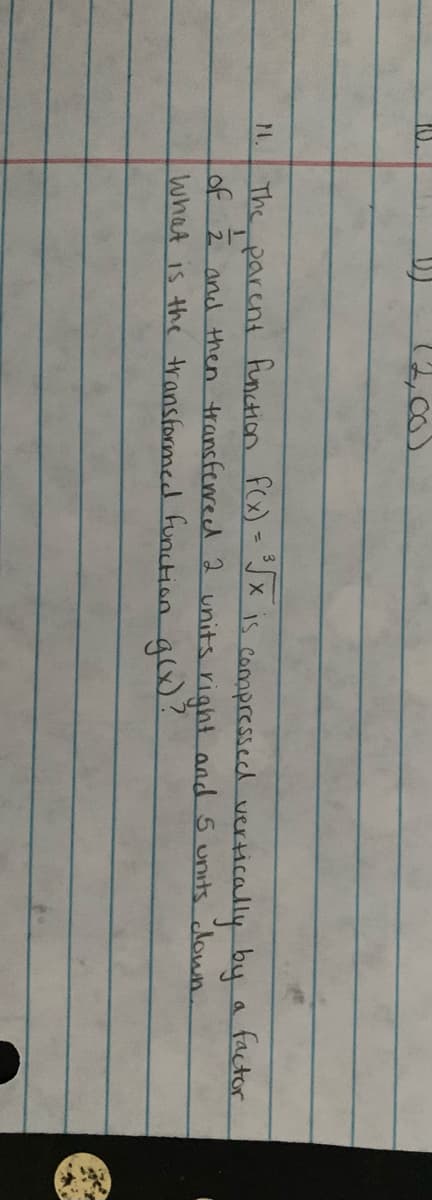 10. D) (2,∞)
11. The parent function f(x) = ³√x is compressed vertically by a factor
of 1/2 and then transferred 2 units right and 5 units down.
What is the transformed function g(x)?